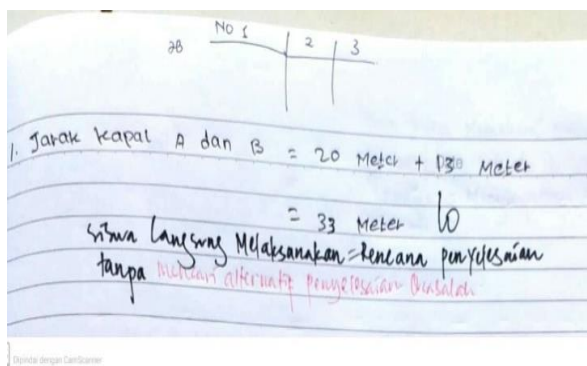 No 1 2 3
2B
1. Jarak kapal A dan B = 20 Meter + 13 Meter
= 33 Meter 10
siswa langsung Melaksanakan Rencana penyelesaian
tanpa mencari alternatif penyelesaian masalah
Dipindai dengan CamScanner